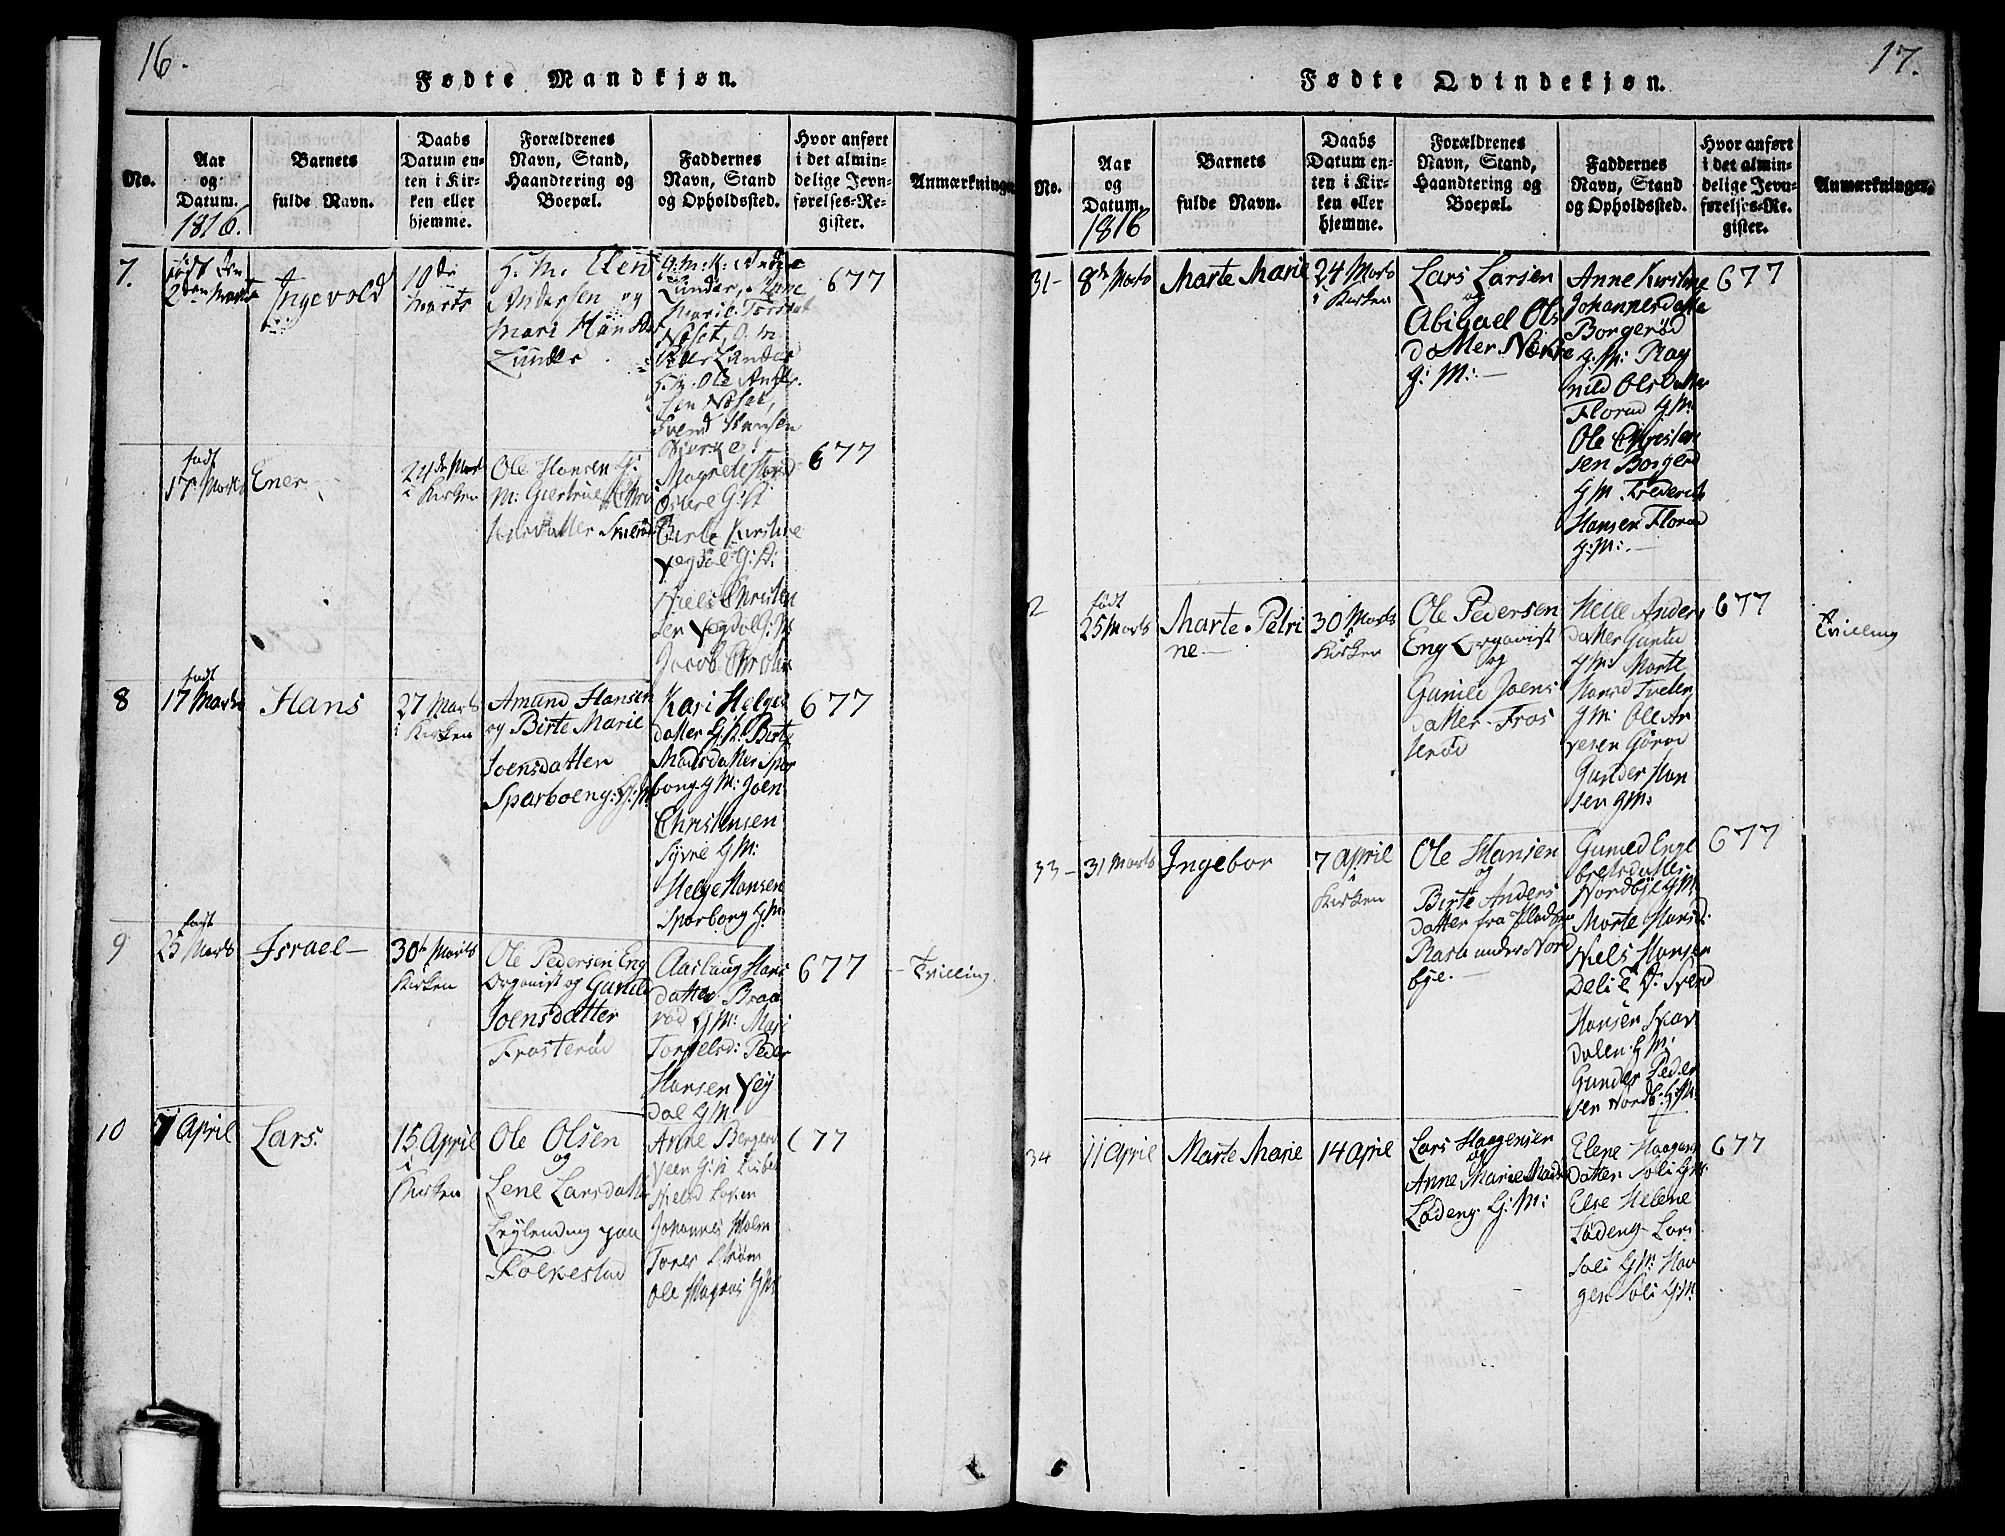 16.
Fødte Mandkjøn.
No.
Aar
og
Datum.
1816.
Barnets
fulde Navn.
Daabs
Datum en-
ten i Kir-
ken eller
hjemme.
Forældrenes
Navn, Stand,
Haandtering og
Boepæl.
Faddernes
Navn, Stand
og Opholdssted.
Hvor anført
i det almin-
delige Jevn-
førelses-Re-
gister.
Anmærkninger.
7.
født den
2den Marts
Ingevold
10de
Marts
G. M. Elen
Andersen og
Mari Hansd
Lunder
Marie
Noset, G. M
G. M. Ole Anders
sen Noset,
Svend Hansen
677
født
17 Marts
Ener
24de Mart
i Kirken
Ole Hansen G:
M: Giertrue
G: A
Berte Kirstine
Vegdal G: A:
Niels Christen
sen Vegdal G: M
Jacob
677
8
født
17 Marts
Hans
27 Marts
i Kirken
Amund Hansen
og Birte Marie
Joensdatter
Sparboeng: G: M
Kari Helges
datter G: K: Birte
Madsdatter Spar
borg G M: Joen
Christensen
Syvre G M:
Helge Hansen
Sparborg G M
677
9
født
25 Marts
Israel
30te Marts
Kirken
Ole Pedersen Eng
Organist og Gunild
Joensdatter
Frosterød
Aaslaug Hans
datter Braa
rød G M: Mari
Torkelsd: Peder
Hansen Vej
dal G M
677
Tvilling
10
7 April
Lars.
15 April
i
Kirken
Ole Olsen
og
Lene Larsdatt
Leylending paa
Folkestad
Anne Berger
Veen G: A
Johannes Holm
Tores Strøm
Ole Magnus G M
677
17.
Fødte Qvindekjøn.
No.
Aar
og
Datum.
1816
Barnets
fulde Navn.
Daabs
Datum en-
ten i Kir-
ken eller
hjemme.
Forældrenes
Navn, Stand,
Haandtering og
Boepæl.
Faddernes
Navn, Stand
og Opholdssted.
Hvor anført
i det almin-
delige Jevn-
førelses-Re-
gister.
Anmærkninger.
31-
8de Marts
Marte Marie
24 Marts
i Kirken
Lars Larsen
og
Abigael Ols
datter Nøkre
G: M:
Anne Kirstine
Johannesdatte
Borgerød
G: M: Rag
nild Olsdatter
Florød G M:
Ole Christen
sen Borgerød
G M. Frederik
Hansen Florød
G: M:
677
2
født
25 Marts
Marte Petri
ne
30 Marts
i
Kirken
Ole Pedersen
Eng Organist
og
Gunild Joens
datter Fros
terød
Helle Anders
datter Gunrød
G M: Marte
Hansd Tveten
G M: Ole Ar
vesen Gørød
Gunder Han
sen G M:
677
Tvilling
33
31 Marts
Ingebor
7 April
i
Kirken
Ole Hansen
og
Birte Anders
datter fra Pladsen
Rasta under Nord
bye.
Gunild Engl
bretsdatter
Nordbye G M
Marte Hansd:
Niels Hansen
Svend
Hansen Skav
dalen G M:
Gunder Peder
sen Nordb: G: M:
677
34
11 April
Marte Marie
14 April
Lars Haagensen
og
Anne Marie Mads
Lødeng. G: M:
Elene Haagens
datter Soli G M:
Else Helene
Lødeng Lars
Soli G M: Haa
gen Soli G M
677